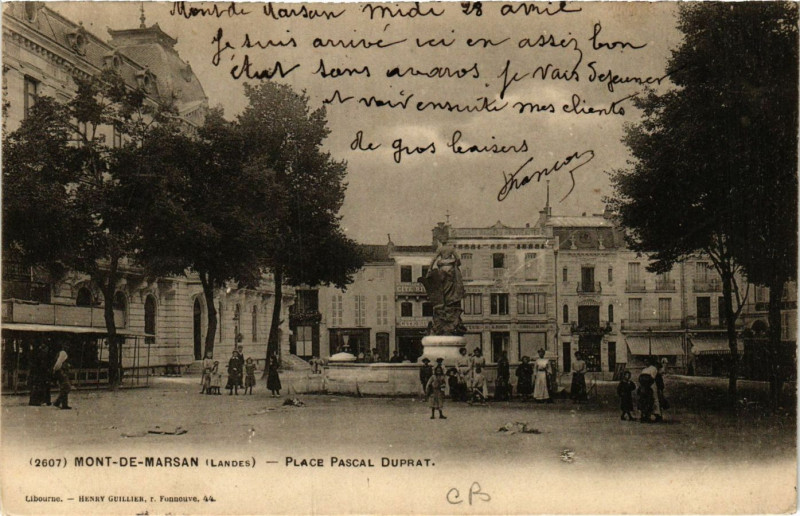 Mont de Marsan Midi 28 avril
Je suis arrivé ici en assez bon
état sans avaros je vais déjeuner
et voir ensuite mes clients
de gros baisers
François
(2607) MONT-DE-MARSAN (LANDES) — PLACE PASCAL DUPRAT.
Libourne. — HENRY GUILLIER, r. Fonneuve, 44.
CP